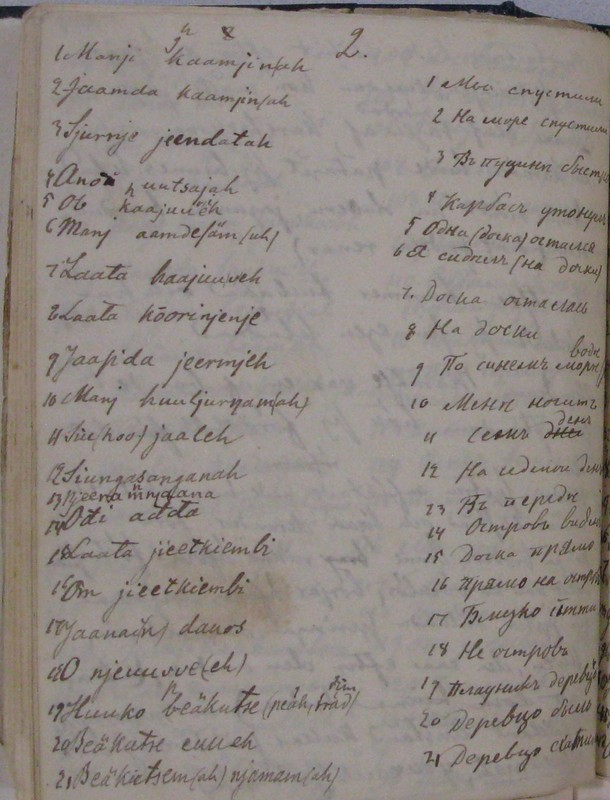 2.
1 Manji kaamjin(ah
2 Jaamda kaamjin(ah
3 Sjurnje jeendatah
4 Anoi nuutsajah
5 Ob kaajuueh
6 Manj aamdesäm(ah)
7 Laata haajuuveh
8 Laata koorinjenje
9 Jaasida jeermjeh
10 Manj huuljurnam(ah)
11 Siu(hoo) jaaleh
12 Siungasanganah
14 Odi adda
15 Laata jieetkiembi
16 On jieetkiembi
17 Jaana(n) danos
18 O njeuuvve(eh)
19 Huuko beäkutse (peäh, träd)
20 Beäkutse euueh
21 Beäkutsem(ah) njamam(ah)
1 Мы спустили
2 На море спустили
3 Въ пущинѣ быстр
4 Карбасъ утонулъ
5 Одна (доска) остался
6 Я сидѣлъ (на доски)
7. Доска осталась
8 На доски
9 По синемъ морѣ
10 Меня носитъ
11 Семь день
12 На седмой ден
13 Въ передѣ
14 Островъ виден
15 Доска прямо
16 Прямо на остров
17 Близко
18 Не островъ
19 Плавникъ
20 Деревцо было
21 Деревцо